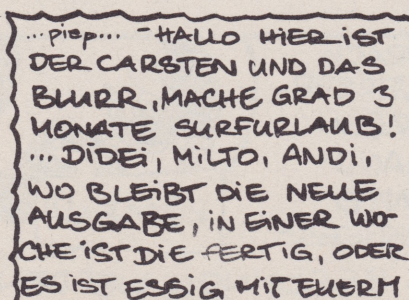 ...piep... - HALLO HIER iST
DER CARSTEN UND DAS
BLURR, MACHE GRAD 3
MONATE SURFURLAUB!
... DiDEi, MiLTO, ANDi,
WO BLEiBT DiE NEUE
AUSGABE, iN EiNER WO-
CHE iST DiE FERTiG, ODER
ES iST ESSiG MiT EUERM